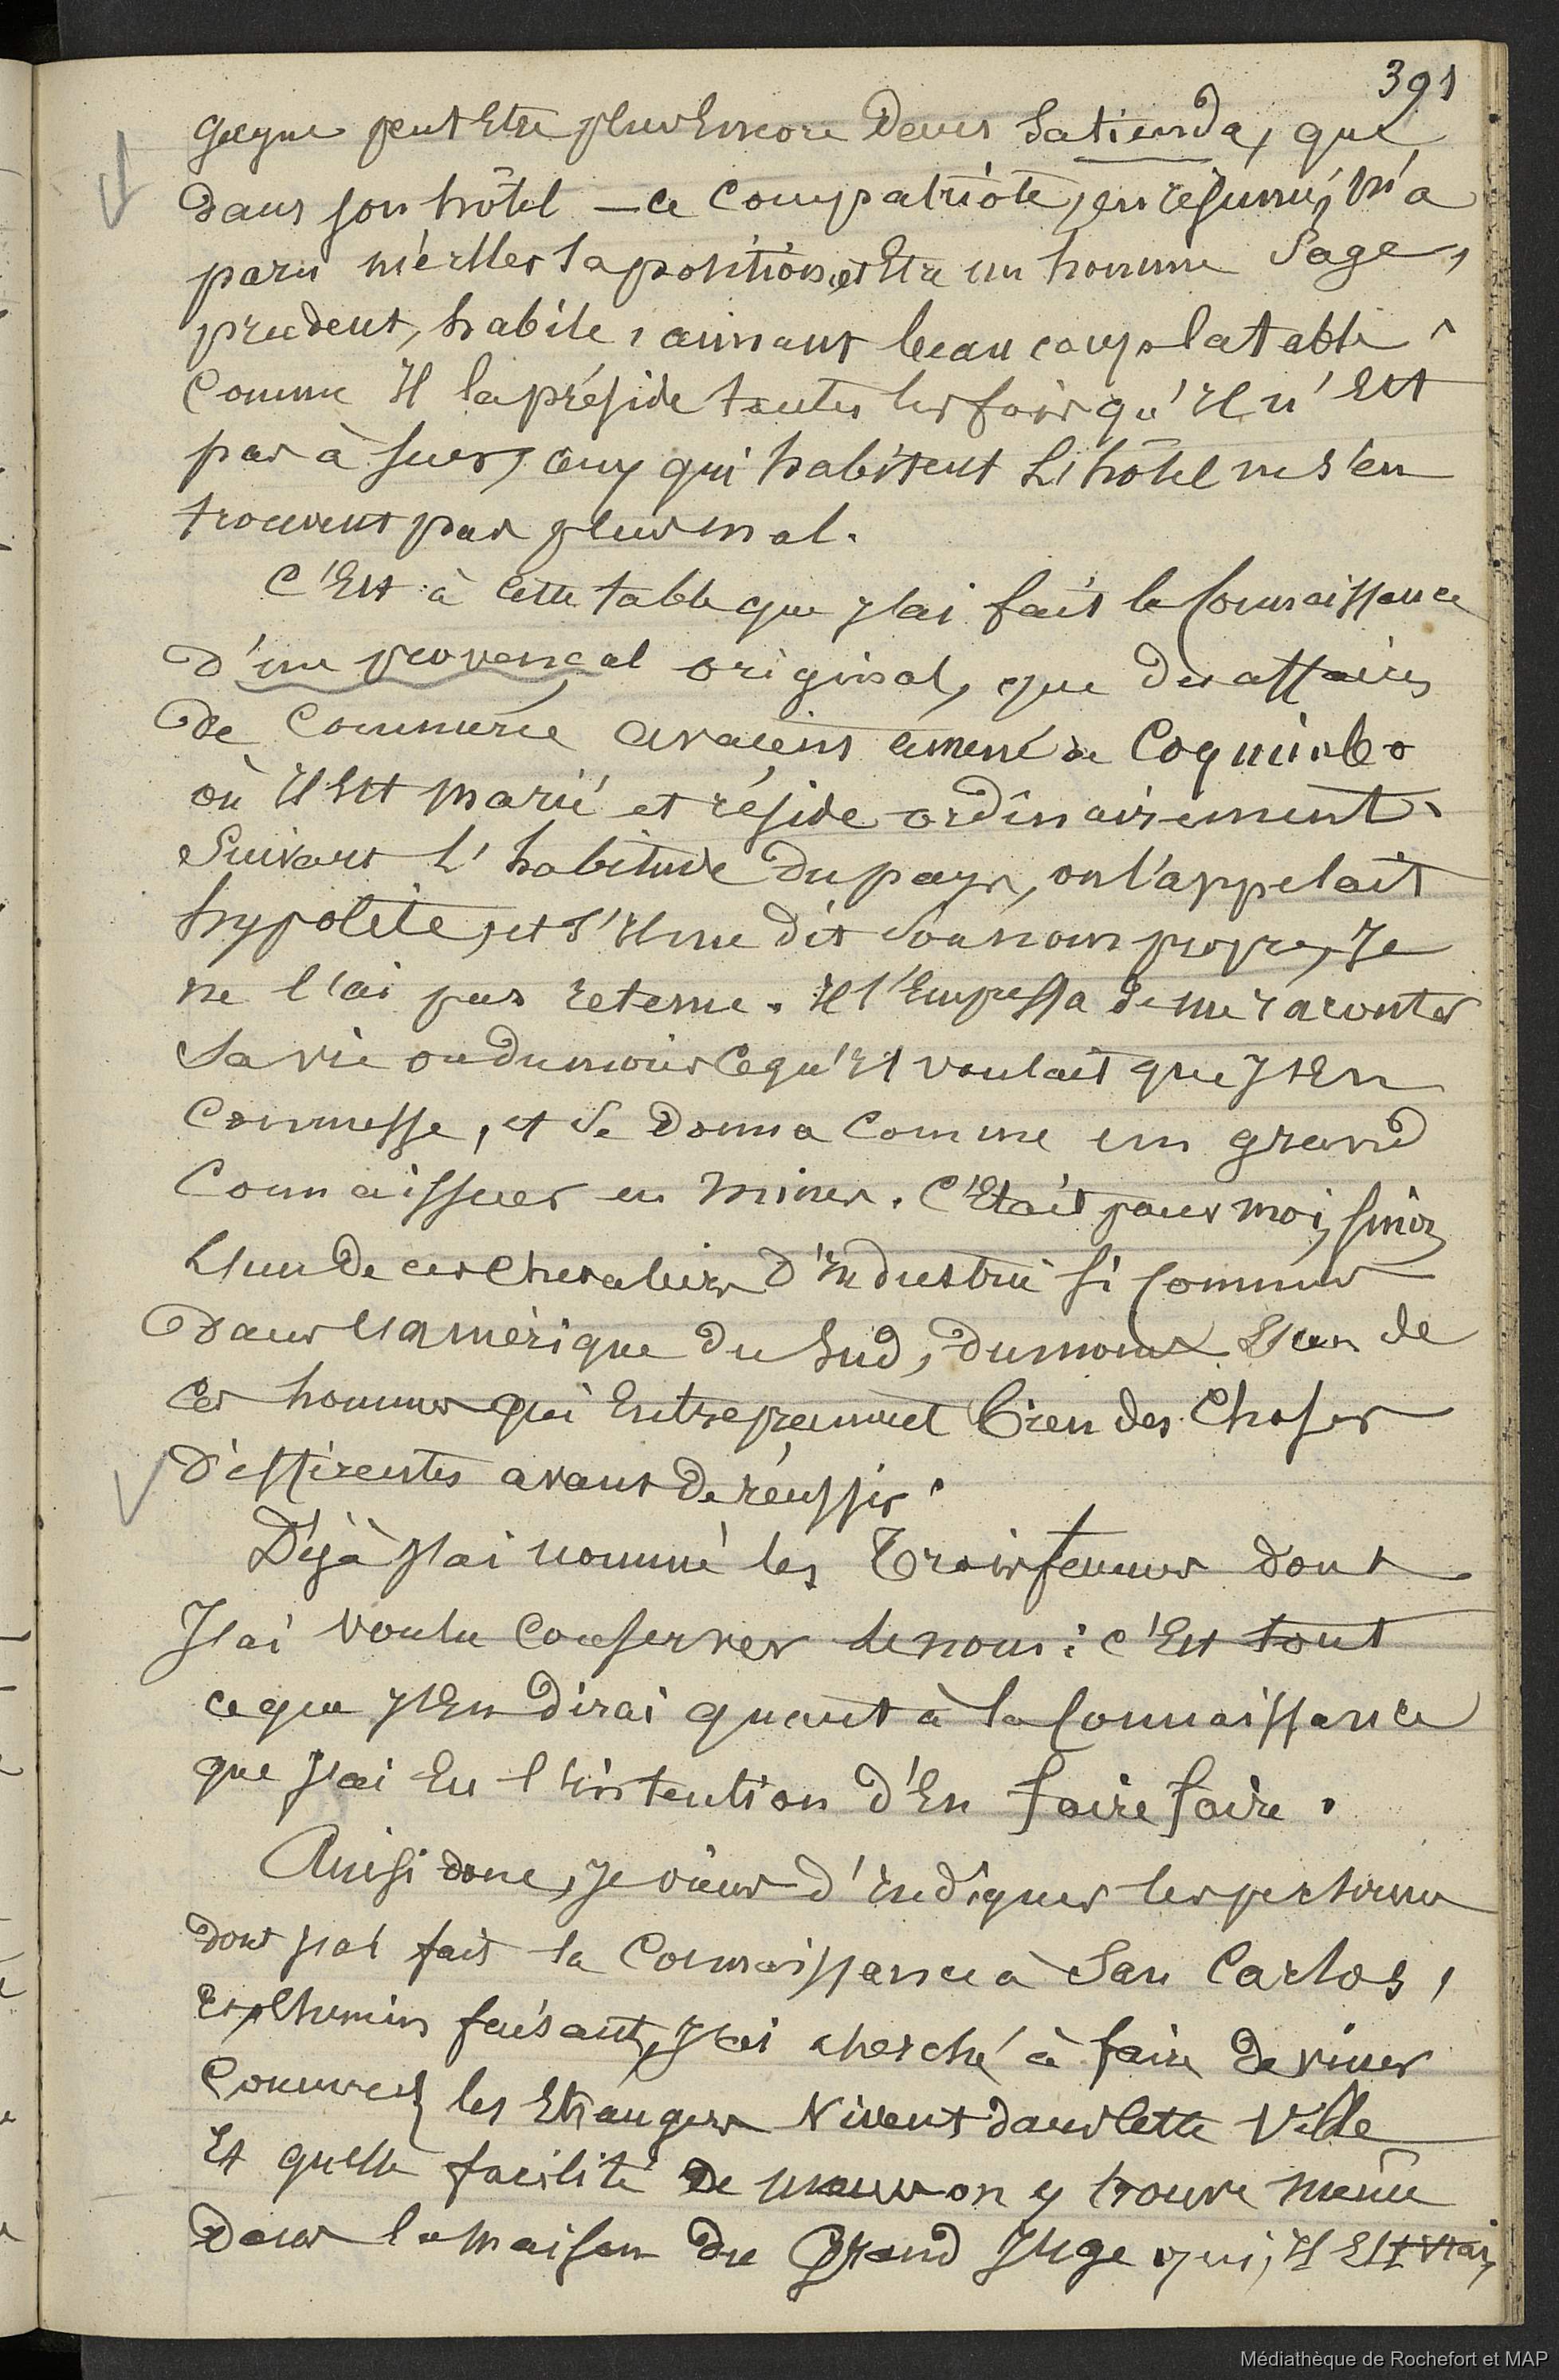 391
gagne peut être plus encore dans sa tienda, que
dans son hôtel — ce compatriote, en résumé, m'a
paru mériter sa position, et être un homme sage,
prudent, habile, aimant beaucoup la table.
Comme il la préside toutes les fois qu'il n'est
pas à jeun, ceux qui habitent l'hôtel ne s'en
trouvent pas plus mal.
C'est à cette table que j'ai fait la connaissance
d'un provençal original, que des affaires
de commerce avaient amené de Coquimbo
où il est marié et réside ordinairement.
Suivant l'habitude du pays, on l'appelait
hypolite, et s'il me dit son nom propre, je
ne l'ai pas retenu. Il s'empressa de me raconter
sa vie ou du moins ce qu'il voulait que j'en
connusse, et se donna comme un grand
connaisseur en mines. C'était pour moi, sinon
l'un de ces chevaliers d'industrie si communs
dans l'amérique du sud, du moins l'un de
ces hommes qui entreprennent bien des choses
différentes avant de réussir.
Déjà j'ai nommé les trois femmes dont
j'ai voulu conserver le nom : c'est tout
ce que j'en dirai quant à la connaissance
que j'ai eu l'intention d'en faire faire.
Ainsi donc, je viens d'indiquer les personnes
dont j'ai fait la connaissance à San Carlos,
et, chemin faisant, j'ai cherché à faire deviner
comment les étrangers vivent dans cette ville
et quelle facilité de mœurs on y trouve même
dans la maison du Grand Juge qui, il est vrai,
Médiathèque de Rochefort et MAP